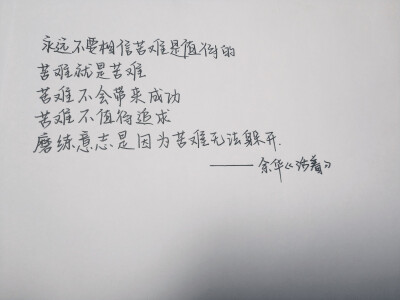 永远不要相信苦难是值得的
苦难就是苦难
苦难不会带来成功
苦难不值得追求
磨练意志是因为苦难无法躲开.
——余华《活着》